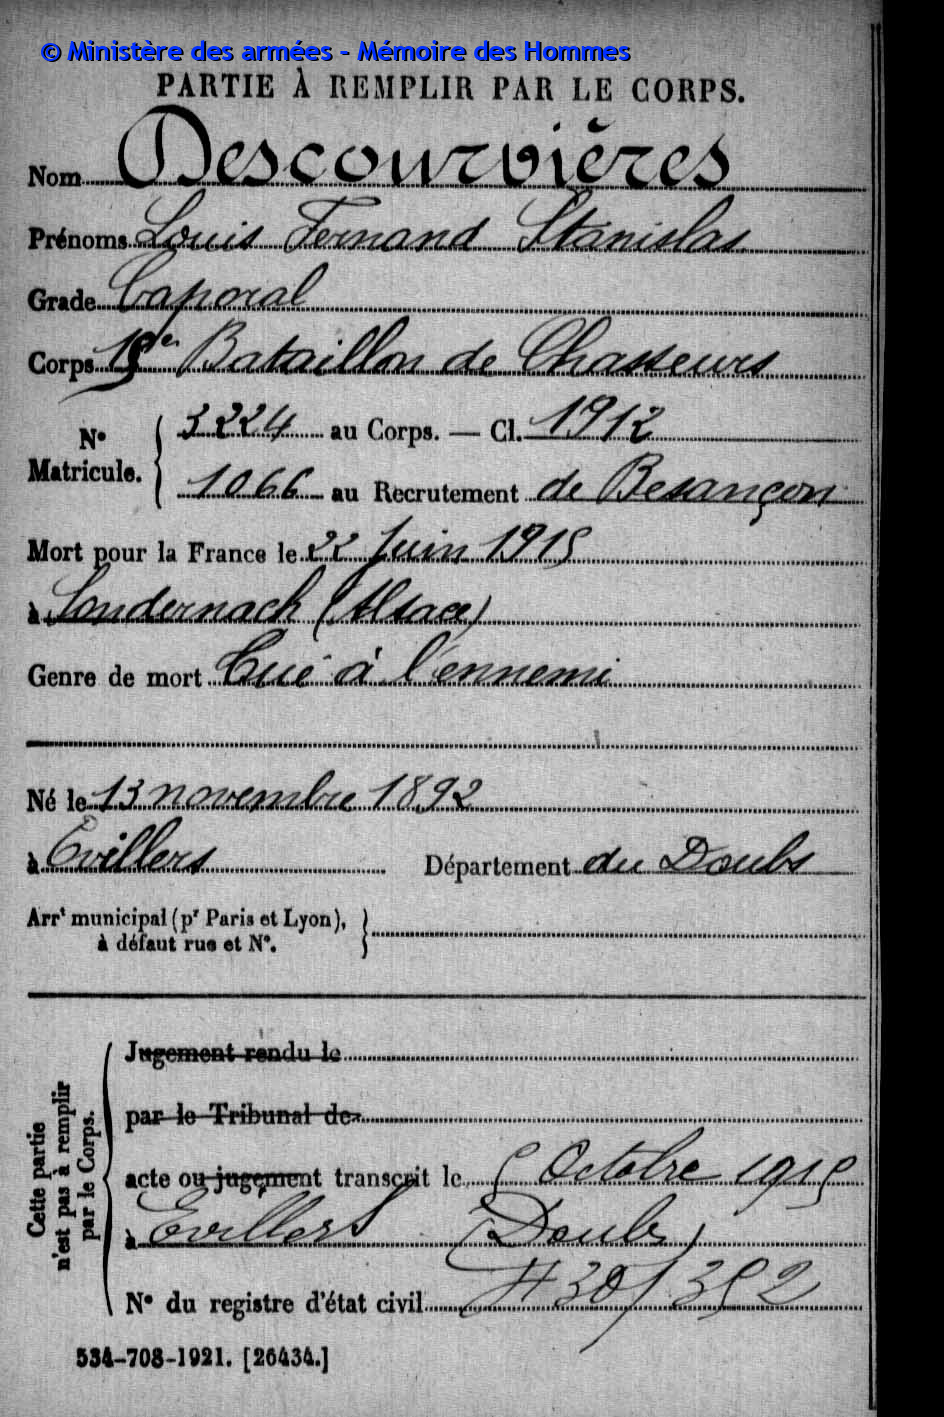 © Ministère des armées - Mémoire des Hommes
PARTIE À REMPLIR PAR LE CORPS.
Nom Descourvières
Prénoms Louis Fernand Stanislas
Grade Caporal
Corps 15e Bataillon de Chasseurs
N° Matricule. 3224 au Corps. — Cl. 1912
1066 au Recrutement de Besançon
Mort pour la France le 22 Juin 1915
à Sondernach (Alsace)
Genre de mort Tué à l'ennemi
Né le 13 novembre 1892
à Evillers Département du Doubs
Arrt municipal (pr Paris et Lyon),
à défaut rue et N°.
Cette partie
n'est pas à remplir
par le Corps.
Jugement rendu le
par le Tribunal de
acte ou jugement transcrit le 5 Octobre 1915
à Evillers (Doubs)
N° du registre d'état civil
534-708-1921. [26434.]